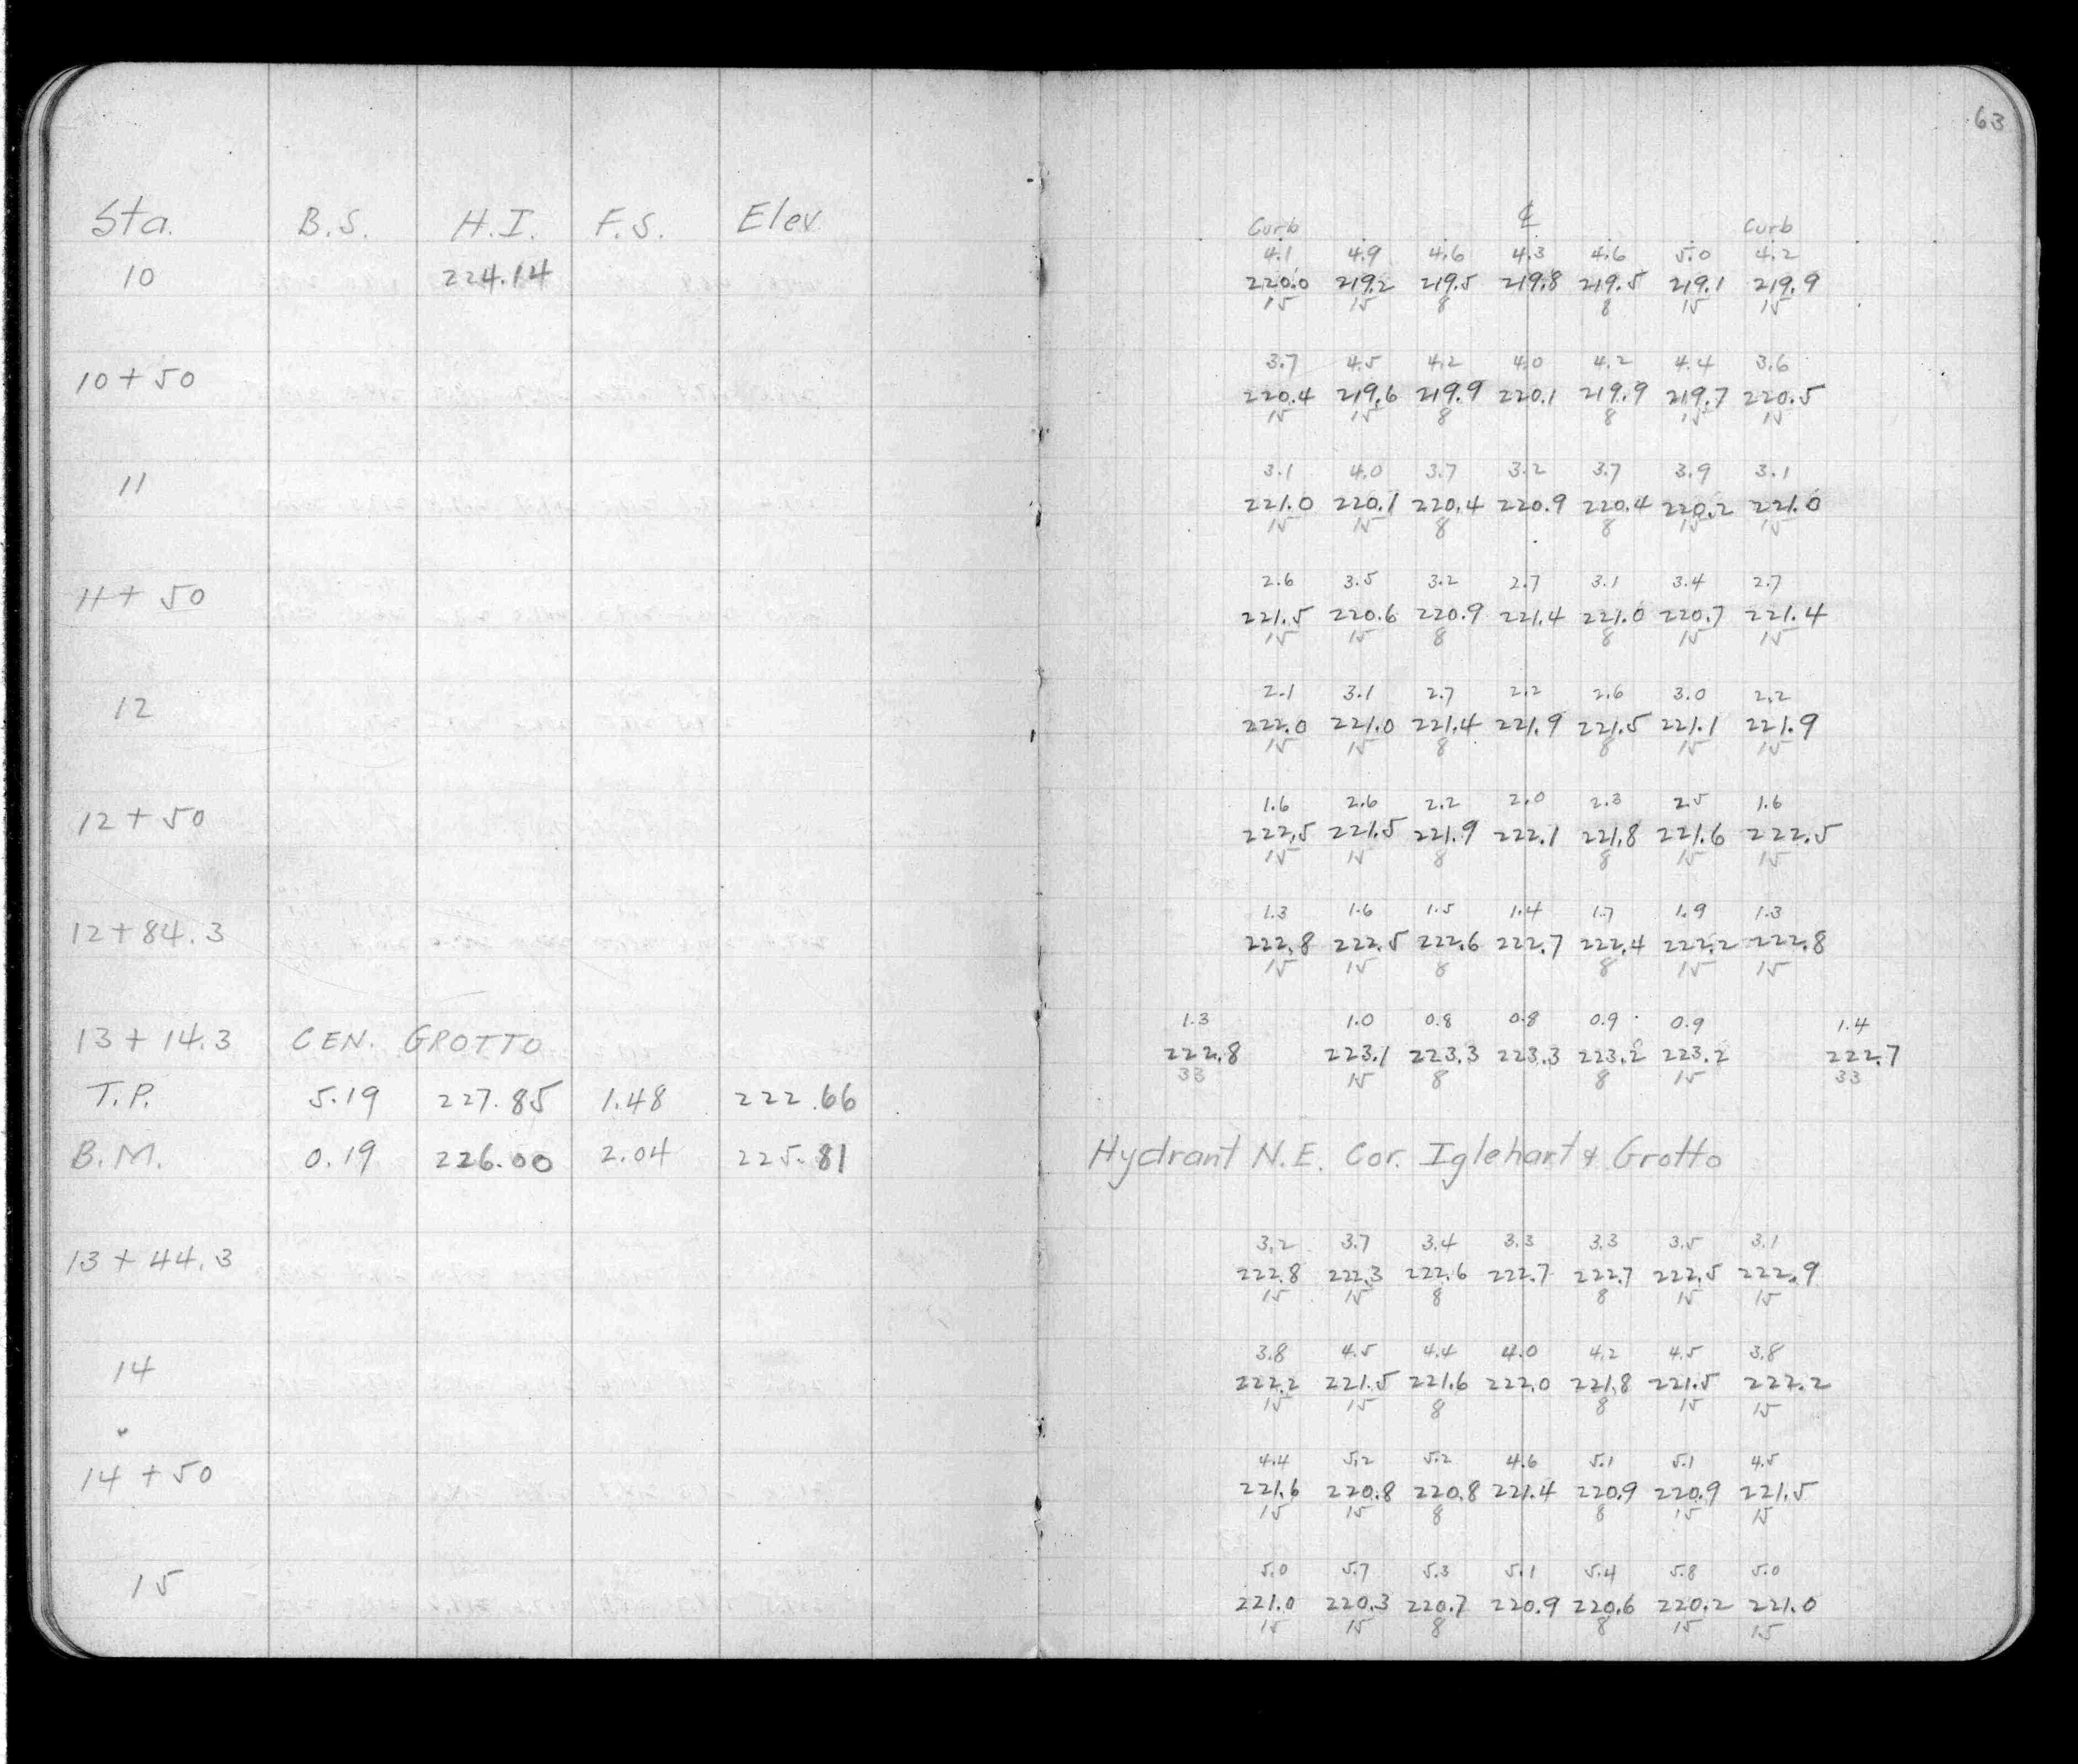 63
Sta. B.S. H.I. F.S. Elev
Curb ℄ Curb
4.1 4.9 4.6 4.3 4.6 5.0 4.2
10 224.14 220.0 219.2 219.5 219.8 219.5 219.1 219.9
15 15 8 8 15 15
3.7 4.5 4.2 4.0 4.2 4.4 3.6
10+50 220.4 219.6 219.9 220.1 219.9 219.7 220.5
15 15 8 8 15 15
3.1 4.0 3.7 3.2 3.7 3.9 3.1
11 221.0 220.1 220.4 220.9 220.4 220.2 221.0
15 15 8 8 15 15
2.6 3.5 3.2 2.7 3.1 3.4 2.7
11+50 221.5 220.6 220.9 221.4 221.0 220.7 221.4
15 15 8 8 15 15
2.1 3.1 2.7 2.2 2.6 3.0 2.2
12 222.0 221.0 221.4 221.9 221.5 221.1 221.9
15 15 8 8 15 15
1.6 2.6 2.2 2.0 2.3 2.5 1.6
12+50 222.5 221.5 221.9 222.1 221.8 221.6 222.5
15 15 8 8 15 15
1.3 1.6 1.5 1.4 1.7 1.9 1.3
12+84.3 222.8 222.5 222.6 222.7 222.4 222.2 222.8
15 15 8 8 15 15
1.3 1.0 0.8 0.8 0.9 0.9 1.4
13+14.3 CEN. GROTTO 222.8 223.1 223.3 223.3 223.2 223.2 222.7
33 15 8 8 15 33
T.P. 5.19 227.85 1.48 222.66
B.M. 0.19 226.00 2.04 225.81 Hydrant N.E. Cor. Iglehart & Grotto
3.2 3.7 3.4 3.3 3.3 3.5 3.1
13+44.3 222.8 222.3 222.6 222.7 222.7 222.5 222.9
15 15 8 8 15 15
3.8 4.5 4.4 4.0 4.2 4.5 3.8
14 222.2 221.5 221.6 222.0 221.8 221.5 222.2
15 15 8 8 15 15
4.4 5.2 5.2 4.6 5.1 5.1 4.5
14+50 221.6 220.8 220.8 221.4 220.9 220.9 221.5
15 15 8 8 15 15
5.0 5.7 5.3 5.1 5.4 5.8 5.0
15 221.0 220.3 220.7 220.9 220.6 220.2 221.0
15 15 8 8 15 15